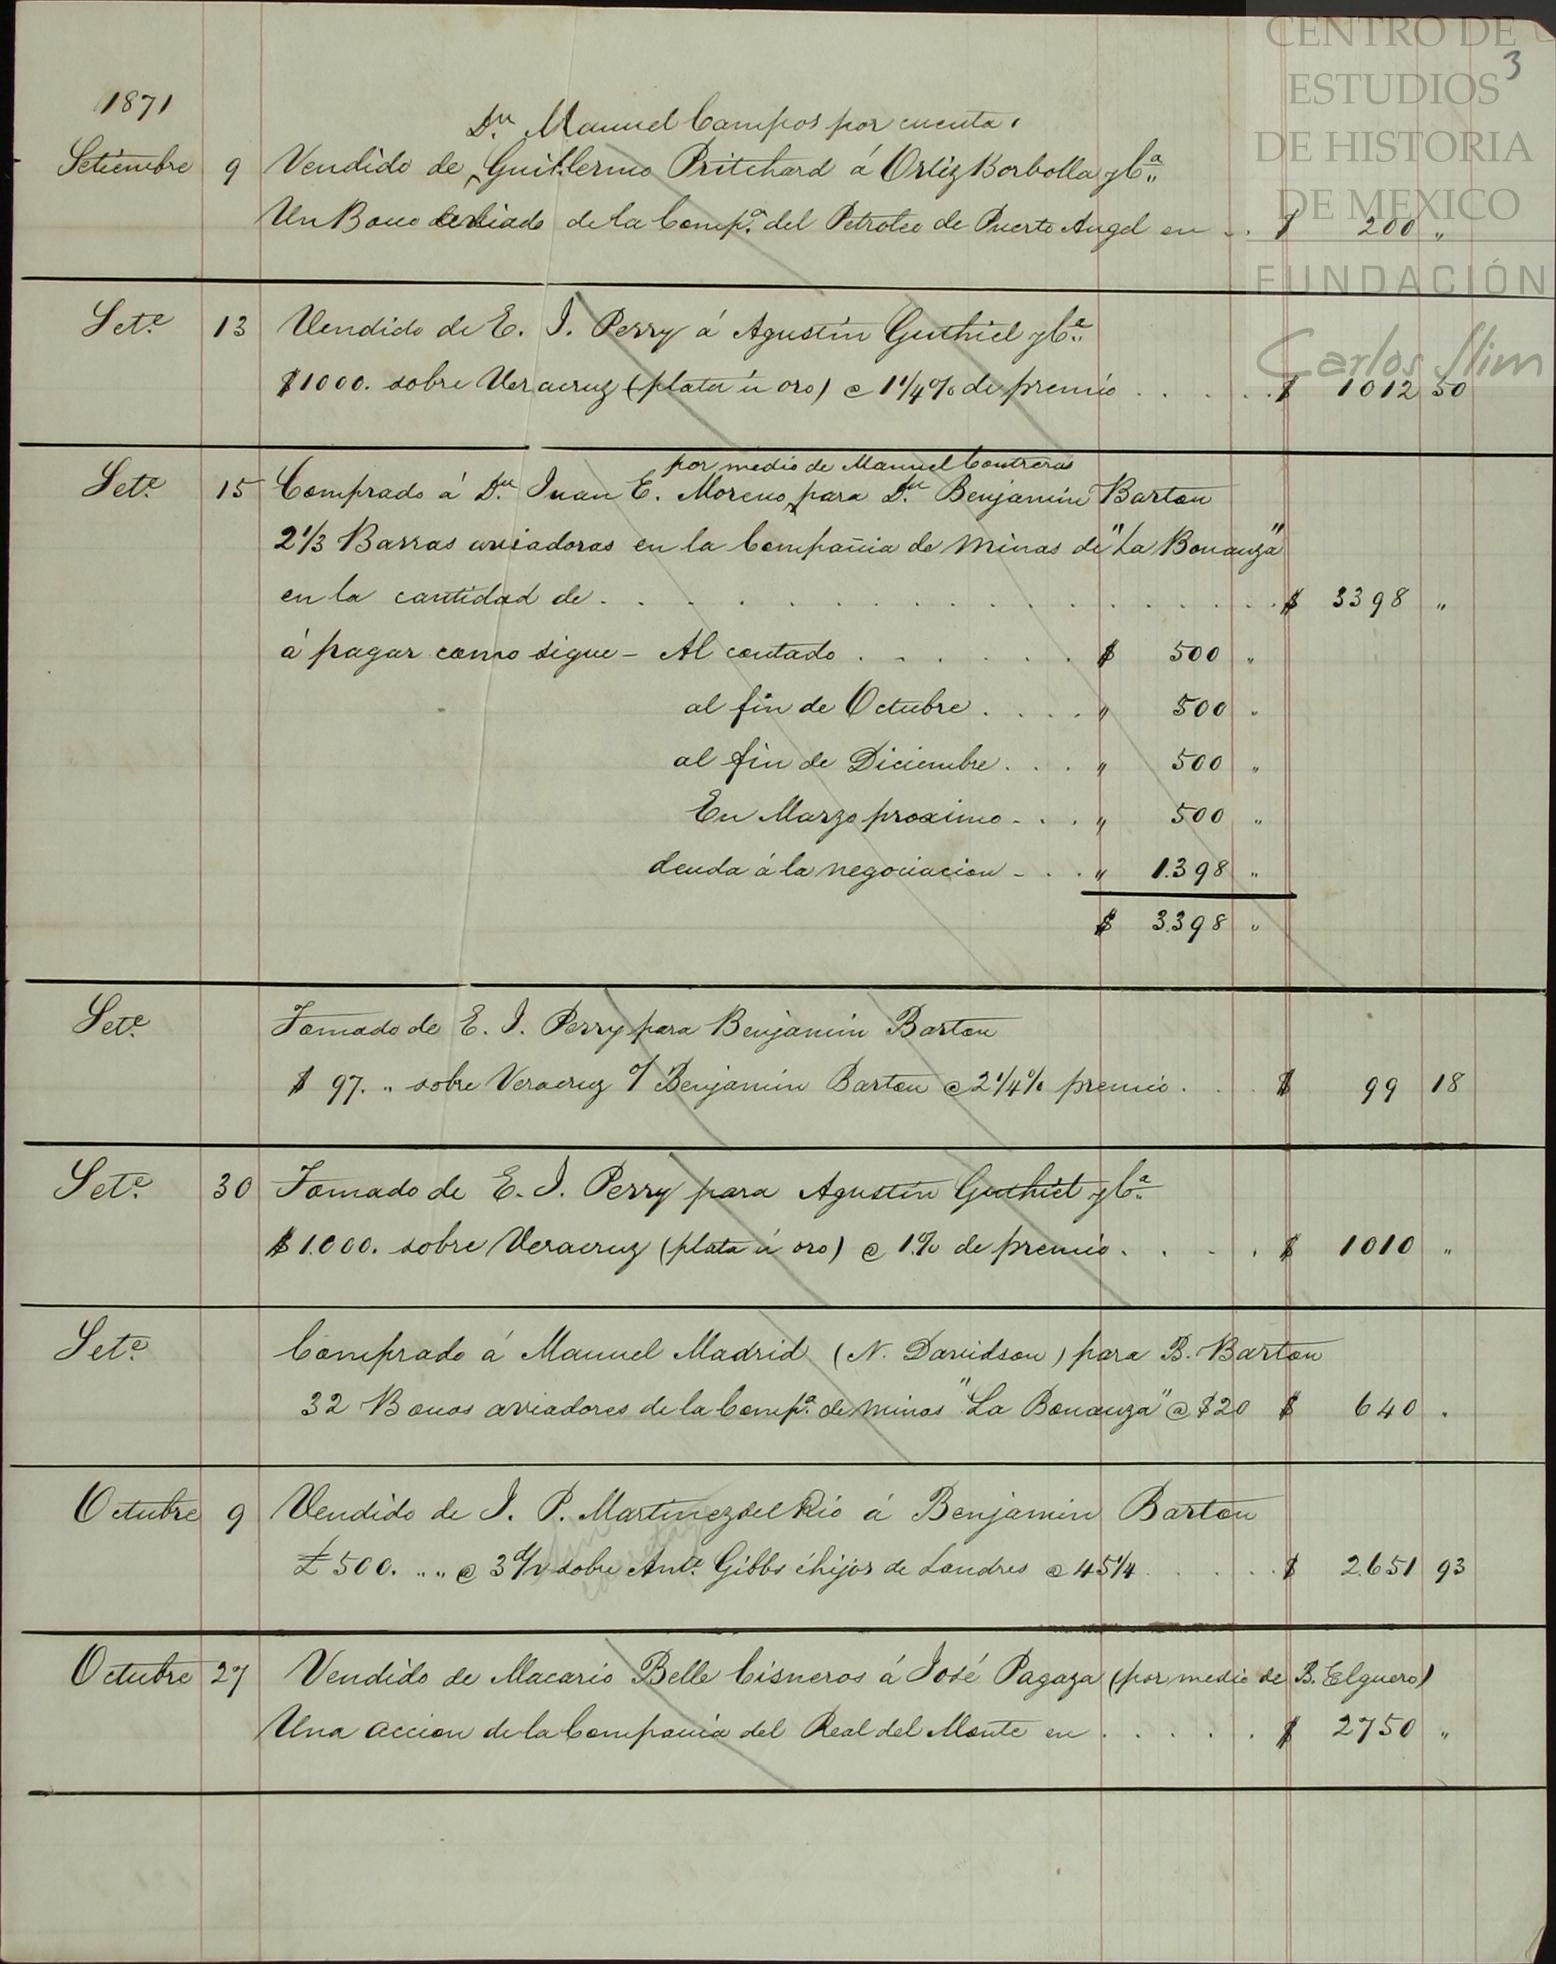 CENTRO DE
ESTUDIOS
DE HISTORIA
DE MEXICO
FUNDACIÓN
Carlos Slim
3
1871
Dn. Manuel Campos por cuenta
Setiembre 9 Vendido de Guillermo Pritchard á Ortiz Borbolla y Ca.
Un Bono de la Compa. del Petroleo de Puerto Angel en . . $ 200 "
Sete. 13 Vendido de E. J. Perry á Agustin Guthiel y Ca.
$1000. sobre Veracruz (plata ú oro) @ 1 1/4 % de premio . . . . . $ 1012 50
por medio de Manuel Contreras
Sete. 15 Comprado á Dn. Juan E. Moreno, para Dn. Benjamin Barton
2 1/3 Barras aviadoras en la Compañia de Minas de "La Bonanza"
en la cantidad de . . . . . . . . . . $ 3398 "
á pagar como sigue - Al contado . . . . . . $ 500 "
al fin de Octubre . . . . " 500 "
al fin de Diciembre . . . " 500 "
En Marzo proximo - . . " 500 "
deuda á la negociacion - . . " 1.398 "
$ 3.398 "
Sete. Tomado de E. J. Perry para Benjamin Barton
$ 97. " sobre Veracruz o/ Benjamin Barton @ 2 1/4 % premio . . . $ 99 18
Sete. 30 Tomado de E. J. Perry para Agustin Guthiel y Ca.
$1.000. sobre Veracruz (plata ú oro) @ 1.% de premio . . . . $ 1010 "
Sete. Comprado á Manuel Madrid (N. Davidson) para B. Barton
32 Bonos aviadores de la Compa. de minas "La Bonanza" @ $20 $ 640 .
Octubre 9 Vendido de J. P. Martinez del Rio á Benjamin Barton
£ 500. " " @ 3 d/v sobre Anto. Gibbs é hijos de Londres @ 45 1/4 . . . . . $ 2.651 93
Octubre 27 Vendido de Macario Belle Cisneros á José Pagaza (por medio de B. Elguero)
Una accion de la Compañia del Real del Monte en . . . . . $ 2750 "